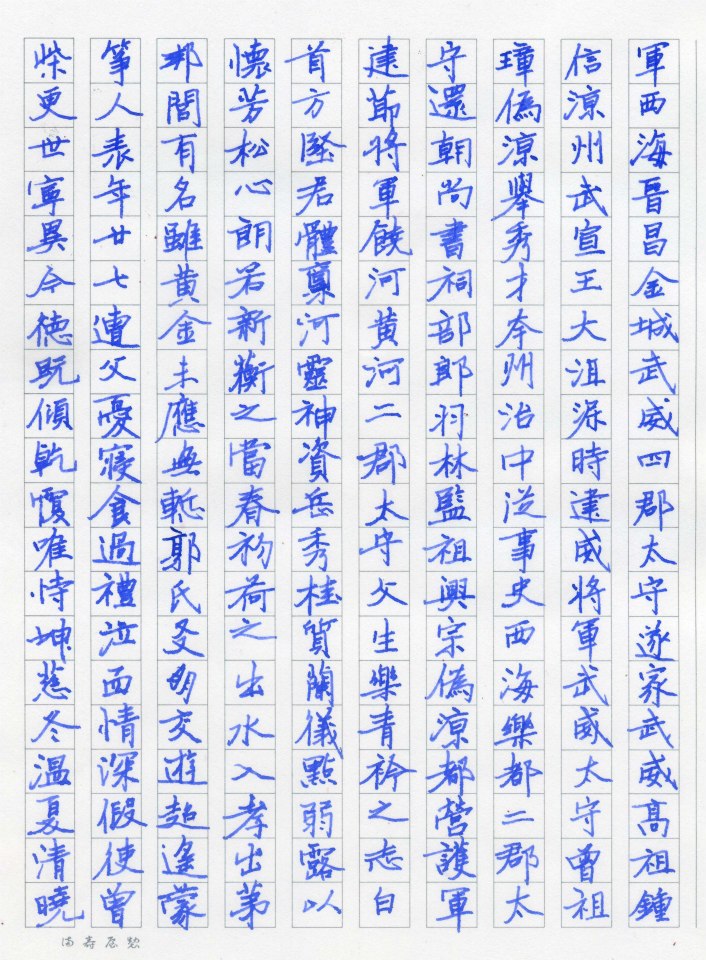 軍西海晉昌金城武威四郡太守遂家武威髙祖鍾
信涼州武宣王大沮渠時建威將軍武威太守曾祖
璋偽涼舉秀才本州治中從事史西海樂都二郡太
守還朝尚書祠部郎羽林監祖興宗偽涼都營護軍
建節將軍饒河黃河二郡太守父生樂青衿之志白
首方堅君體稟河靈神資岳秀桂質蘭儀點弱露以
懷芳松心朗若新蘅之當春初荷之出水入孝出第
邦閭有名雖黃金未應無慚郭氏友朋交遊超遙蒙
人表年廿七遭父憂寢食過禮泣面情深假使曾
柴更世寧異今德既傾乾覆唯恃坤慈冬溫夏清曉